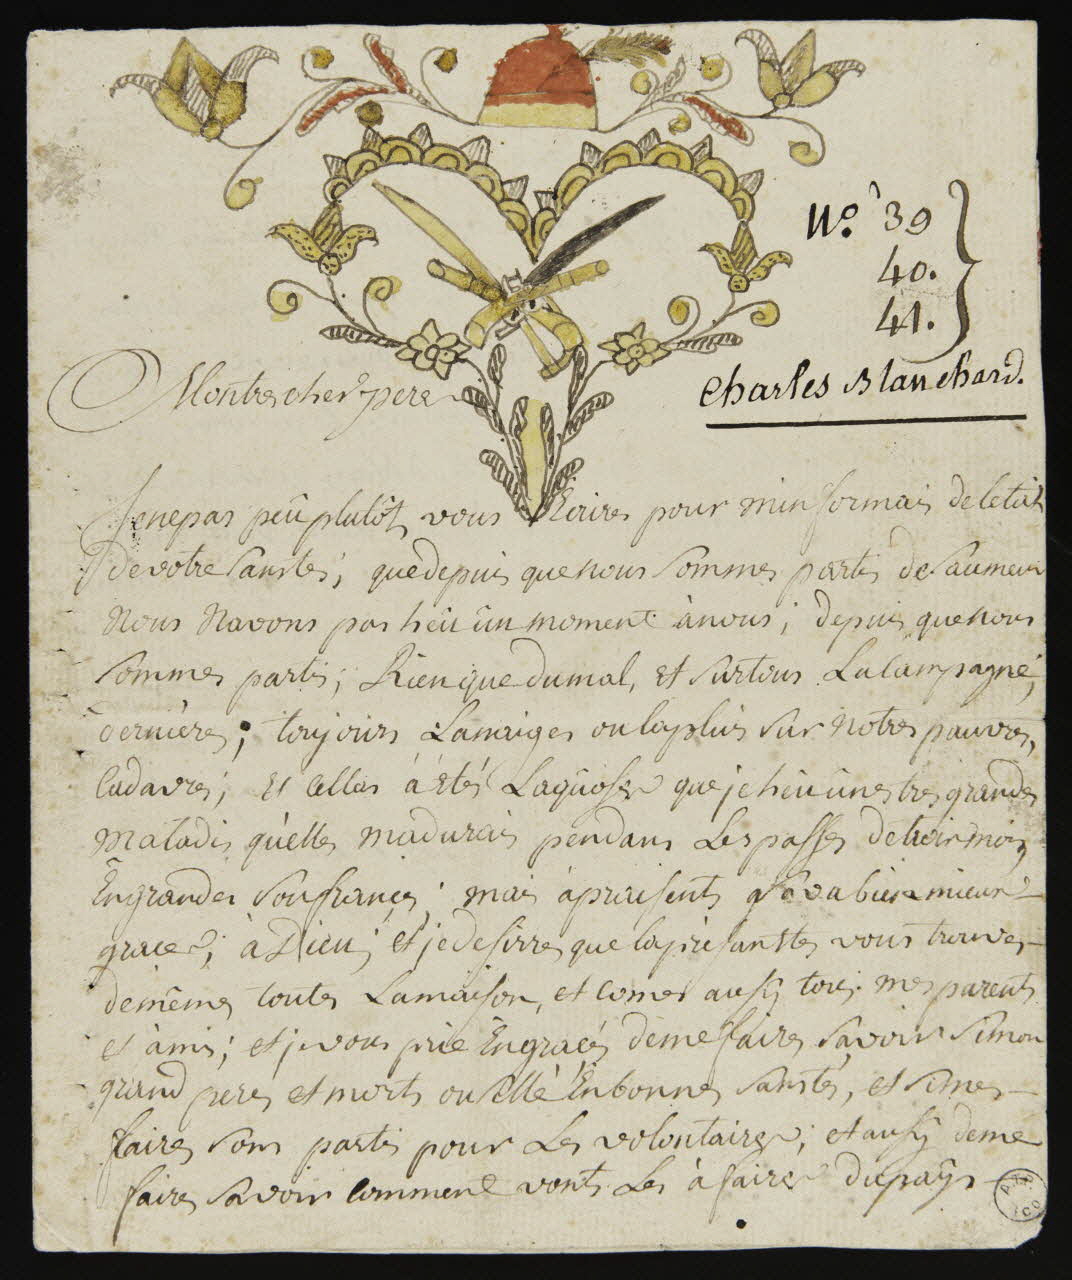 No. 39
40.
41.
Charles Blanchard.
Montrescher pere
Jenepas peüplutôt vous Ecrires pour minformais de letat
devotre Santés; quedepuis quenous Sommes partis de Saumeur
Nous Navons pas heü ûn moment ànous; depuis quenous
Sommes partis; Rienque dumal, et Surtous Lacampagne,
dernieres; toujours Lanaiges oulapluis Sur Notres pauvres,
Cadavres; Et Cellas àEtés Laquose que jeheü ûnes tres grandes
Maladis quelles madurais pendans Les passes detrois mois
Engrandes Soufrances; mais àpraisents savabien mieux
graces; à Dieu; et je desirres que laprésantes vous trouves
demêmes toutes Lamaison, et comes ausÿ tous mes parents
et àmis; et je vous prie Engraces demefaires Savoir Simon
grand peres et morts ou sillé Enbonnes Santés, et Simes
ffaires Sons partis pour Les volontaires; et ausÿ deme
faires Savoir comment vonts Les àfaires dupaÿs